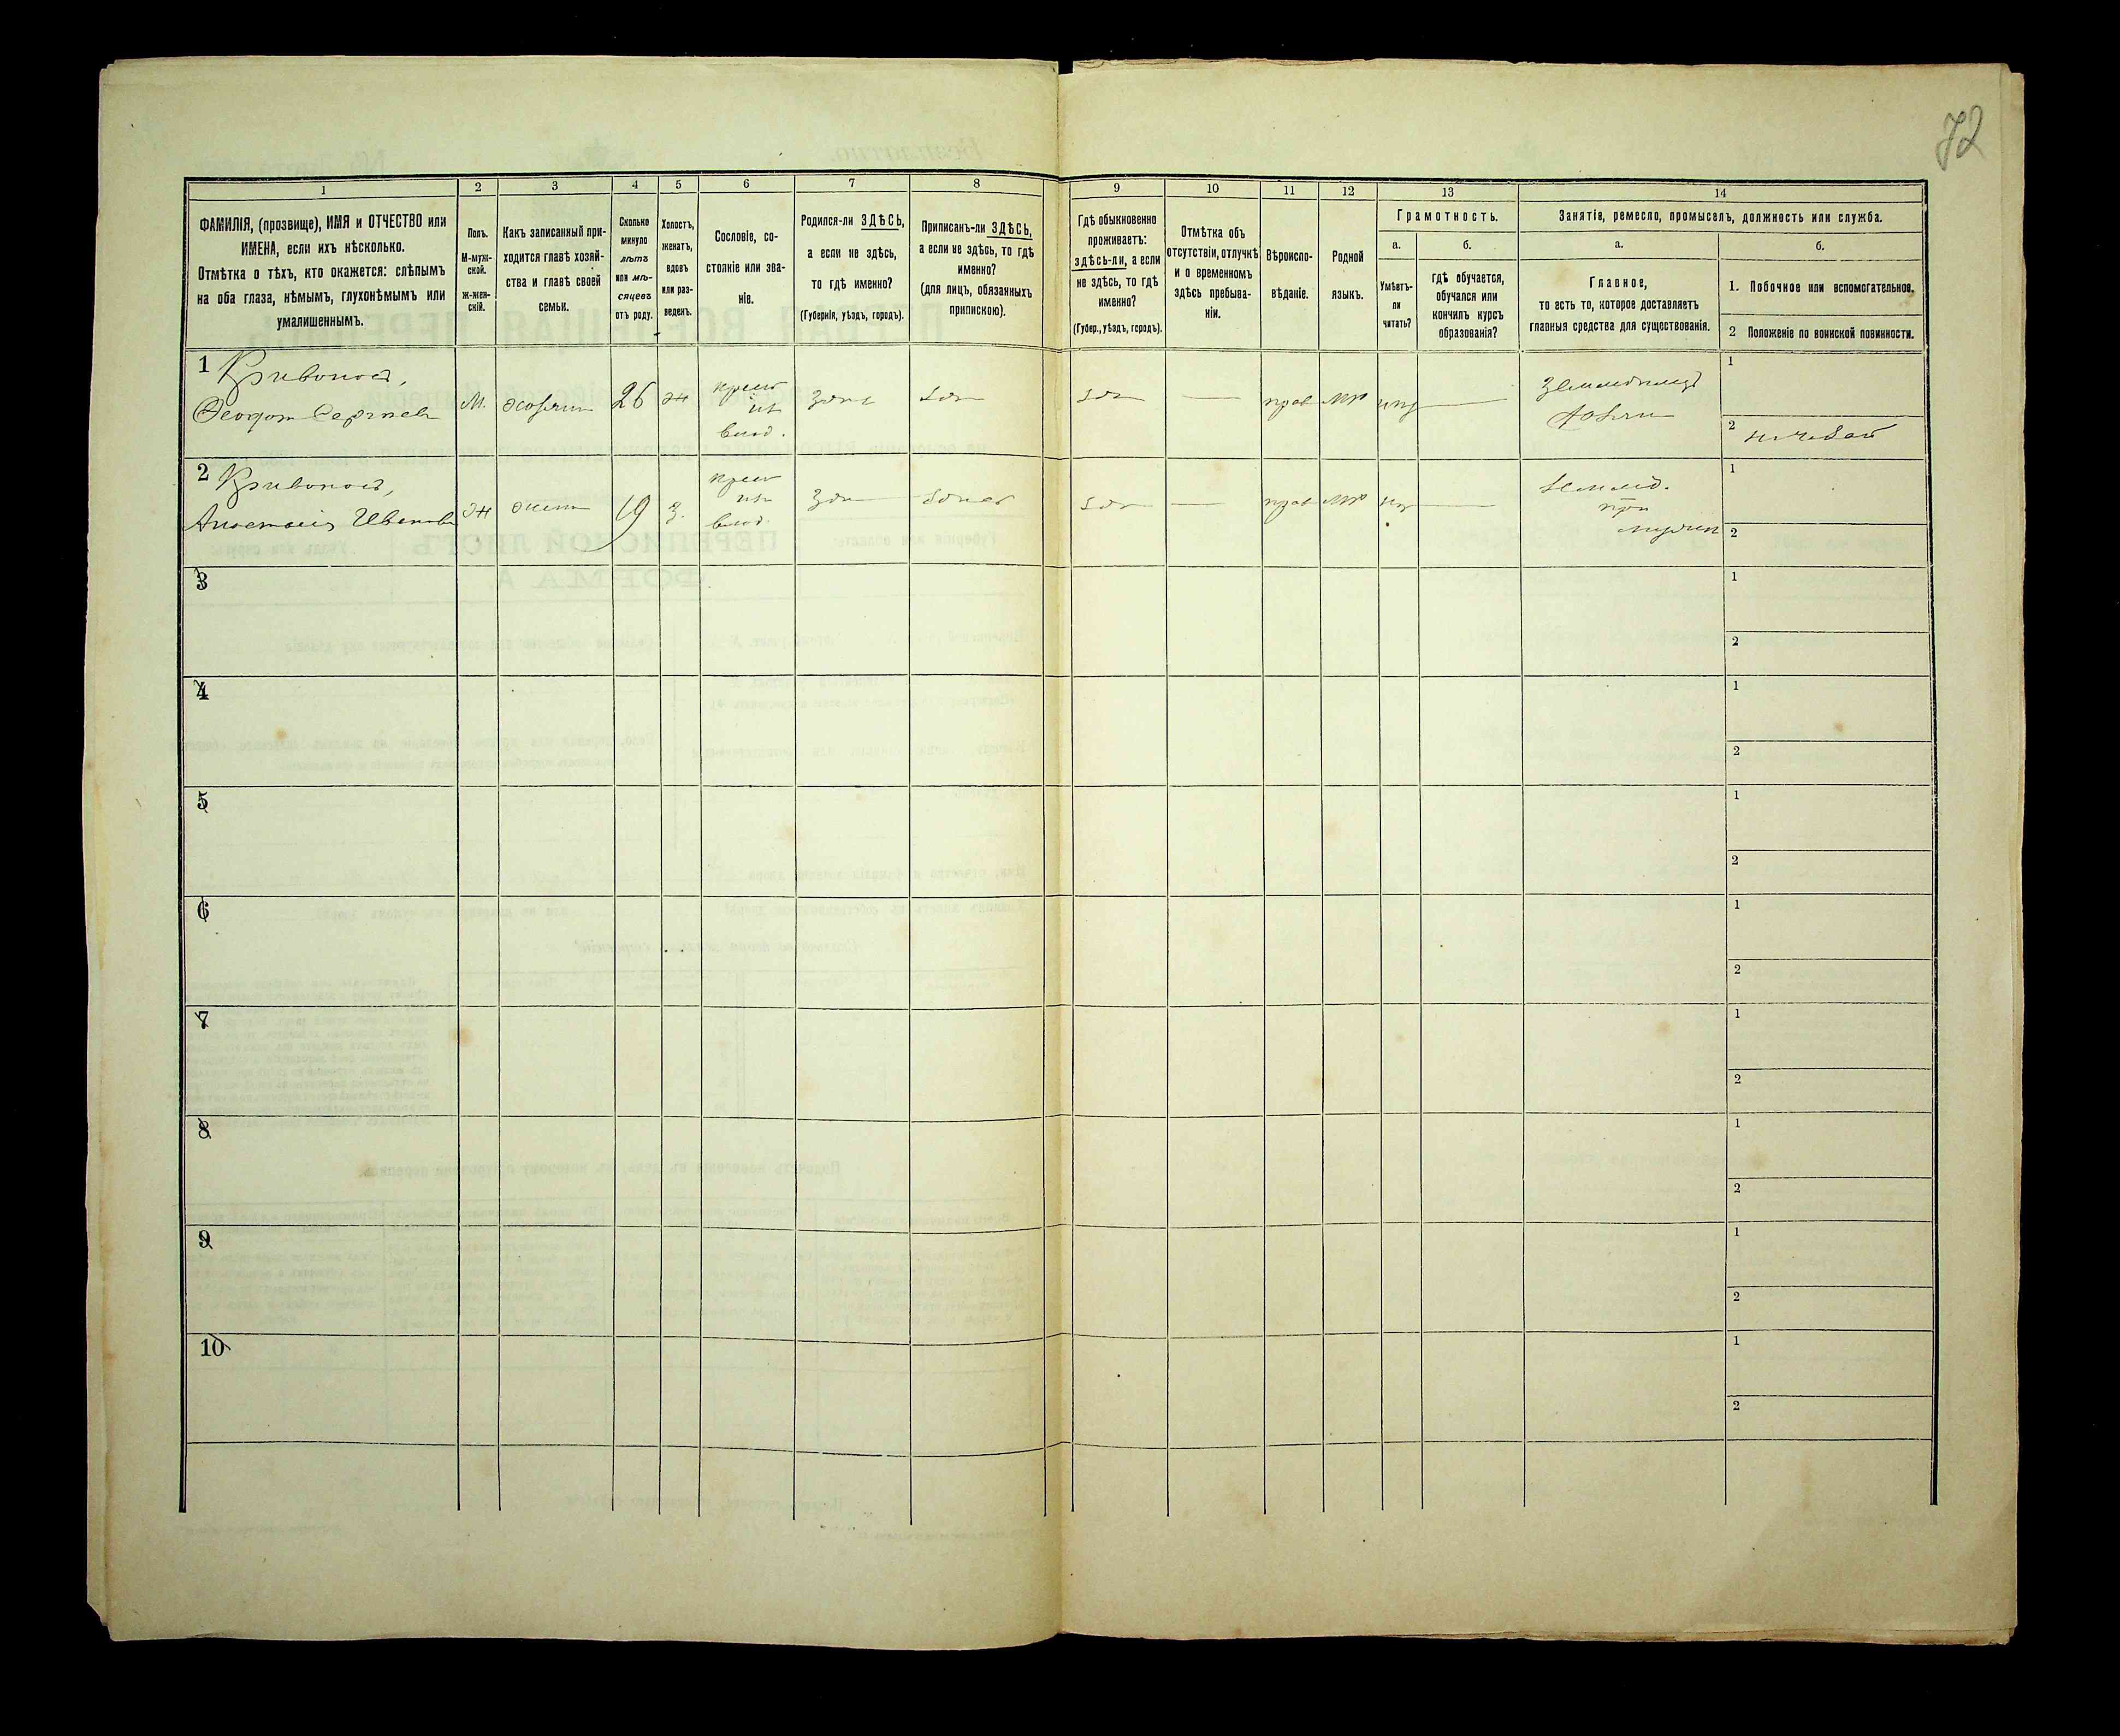 72
1
2
3
4
5
6
7
8
9
10
11
12
13
14
ФАМИЛІЯ, (прозвище), ИМЯ и ОТЧЕСТВО или
ИМЕНА, если ихъ нѣсколько.
Отмѣтка о тѣхъ, кто окажется: слѣпымъ
на оба глаза, нѣмымъ, глухонѣмымъ или
умалишеннымъ.
Полъ.
М-муж-
ской.
Ж-жен-
скій.
Какъ записанный при-
ходится главѣ хозяй-
ства и главѣ своей
семьи.
Сколько
минуло
лѣтъ
или мѣ-
сяцевъ
отъ роду.
Холостъ,
женатъ,
вдовъ
или раз-
веденъ.
Сословіе, со-
стояніе или зва-
ніе.
Родился-ли ЗДѢСЬ,
а если не здѣсь,
то гдѣ именно?
(Губернія, уѣздъ, городъ).
Приписанъ-ли ЗДѢСЬ,
а если не здѣсь, то гдѣ
именно?
(для лицъ, обязанныхъ
припискою).
Гдѣ обыкновенно
проживаетъ:
здѣсь-ли, а если
не здѣсь, то гдѣ
именно?
(Губер., уѣздъ, городъ).
Отмѣтка объ
отсутствіи, отлучкѣ
и о временномъ
здѣсь пребыва-
ніи.
Вѣроиспо-
вѣданіе.
Родной
языкъ.
Грамотность.
а.
Умѣетъ-
ли
читать?
б.
гдѣ обучается,
обучался или
кончилъ курсъ
образованія?
Занятія, ремесло, промыселъ, должность или служба.
а.
Главное,
то есть то, которое доставляетъ
главныя средства для существованія.
б.
1. Побочное или вспомогательное.
2 Положеніе по воинской повинности.
1 Кривоносъ,
Ѳеодоръ Сергѣевъ
М.
хозяин
26
ж
крест
из
влад.
здѣс
прав
мр
1
2
2 Кривоносъ,
Анастасія Иванова
Ж
жена
19
З.
крест
из
влад.
прав
мр
землед.
при
мужѣ
1
2
3
1
2
4
1
2
5
1
2
6
1
2
7
1
2
8
1
2
9
1
2
10
1
2